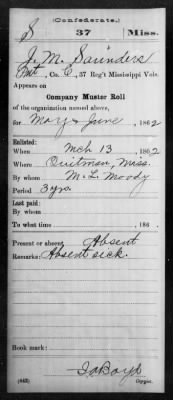 (Confederate.)
S 37 Miss.
J. M. Saunders
Pvt, Co. E, 37 Reg't Mississippi Vols.
Appears on
Company Muster Roll
of the organization named above,
for May & June, 1862
Enlisted:
When Mch 13, 1862
Where Quitman, Miss.
By whom M. L. Moody
Period 3 yrs.
Last paid:
By whom
To what time , 186 .
Present or absent Absent
Remarks: Absent sick.
Book mark:
(642) Copyist.